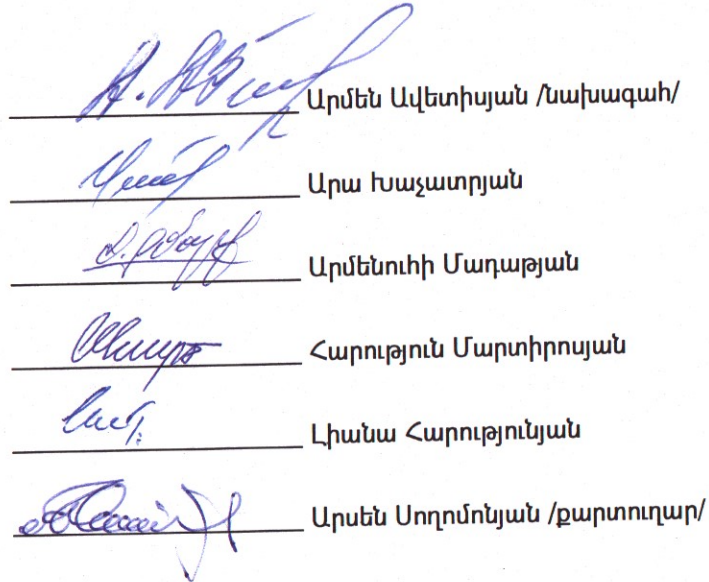 Արմեն Ավետիսյան /նախագահ/
Արա Խաչատրյան
Արմենուհի Մադաթյան
Հարություն Մարտիրոսյան
Լիանա Հարությունյան
Արսեն Սողոմոնյան /քարտուղար/